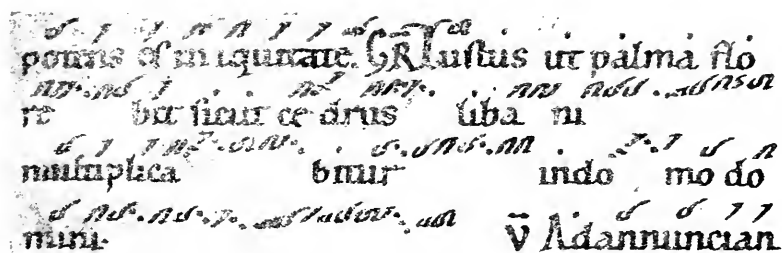 potens es in iquitate. GR Iustus ut palma flo
re bit sicut ce drus liba ni
multiplica bitur indo mo do
mini. V̄ Adannuncian